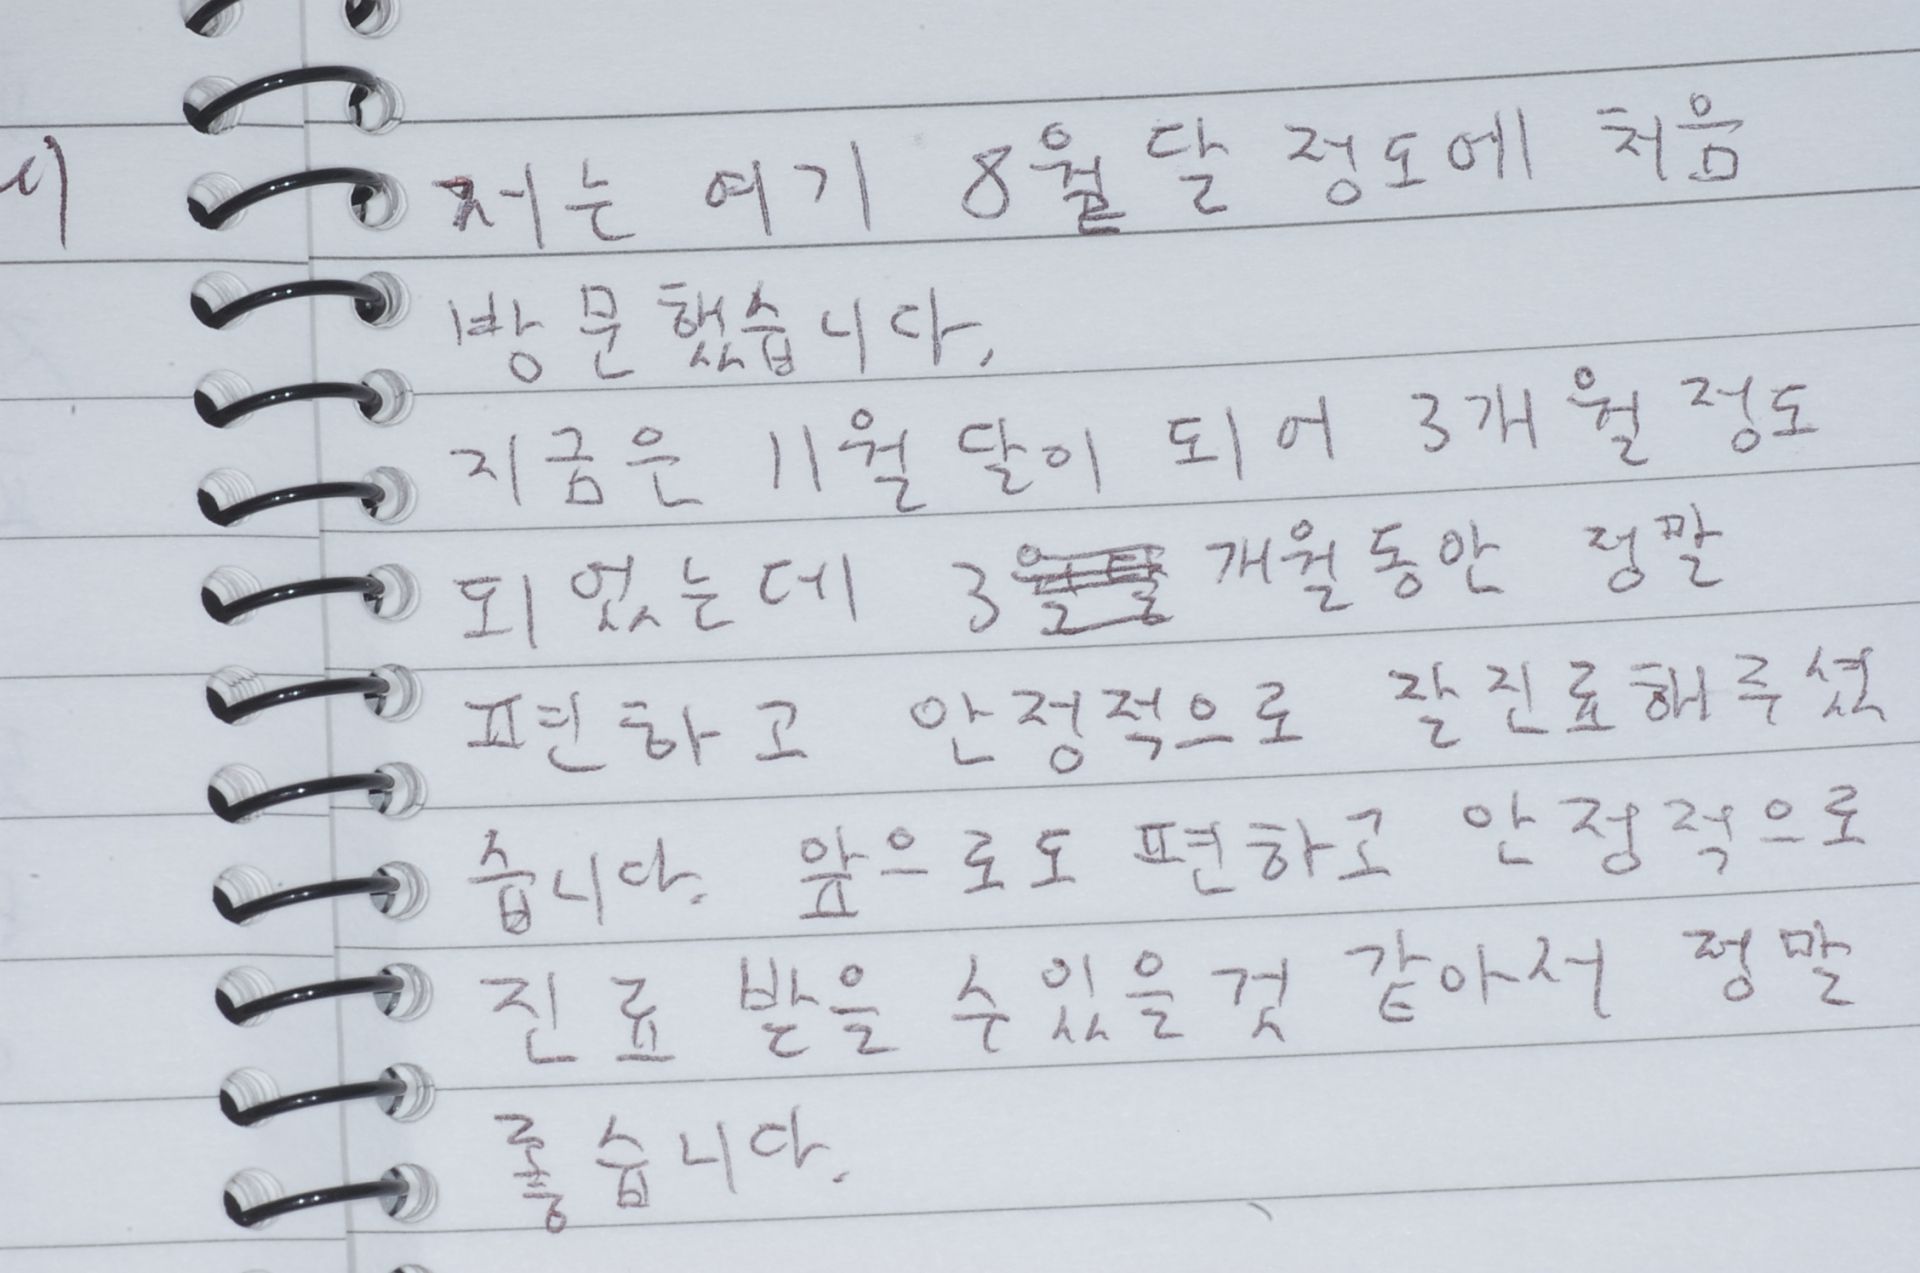 저는 여기 8월달 정도에 처음
방문했습니다.
지금은 11월 달이 되어 3개월 정도
되었는데 3개월동안 정말
편하고 안정적으로 잘진료해주셨
습니다. 앞으로도 편하고 안정적으로
진료 받을 수있을것 같아서 정말
좋습니다.